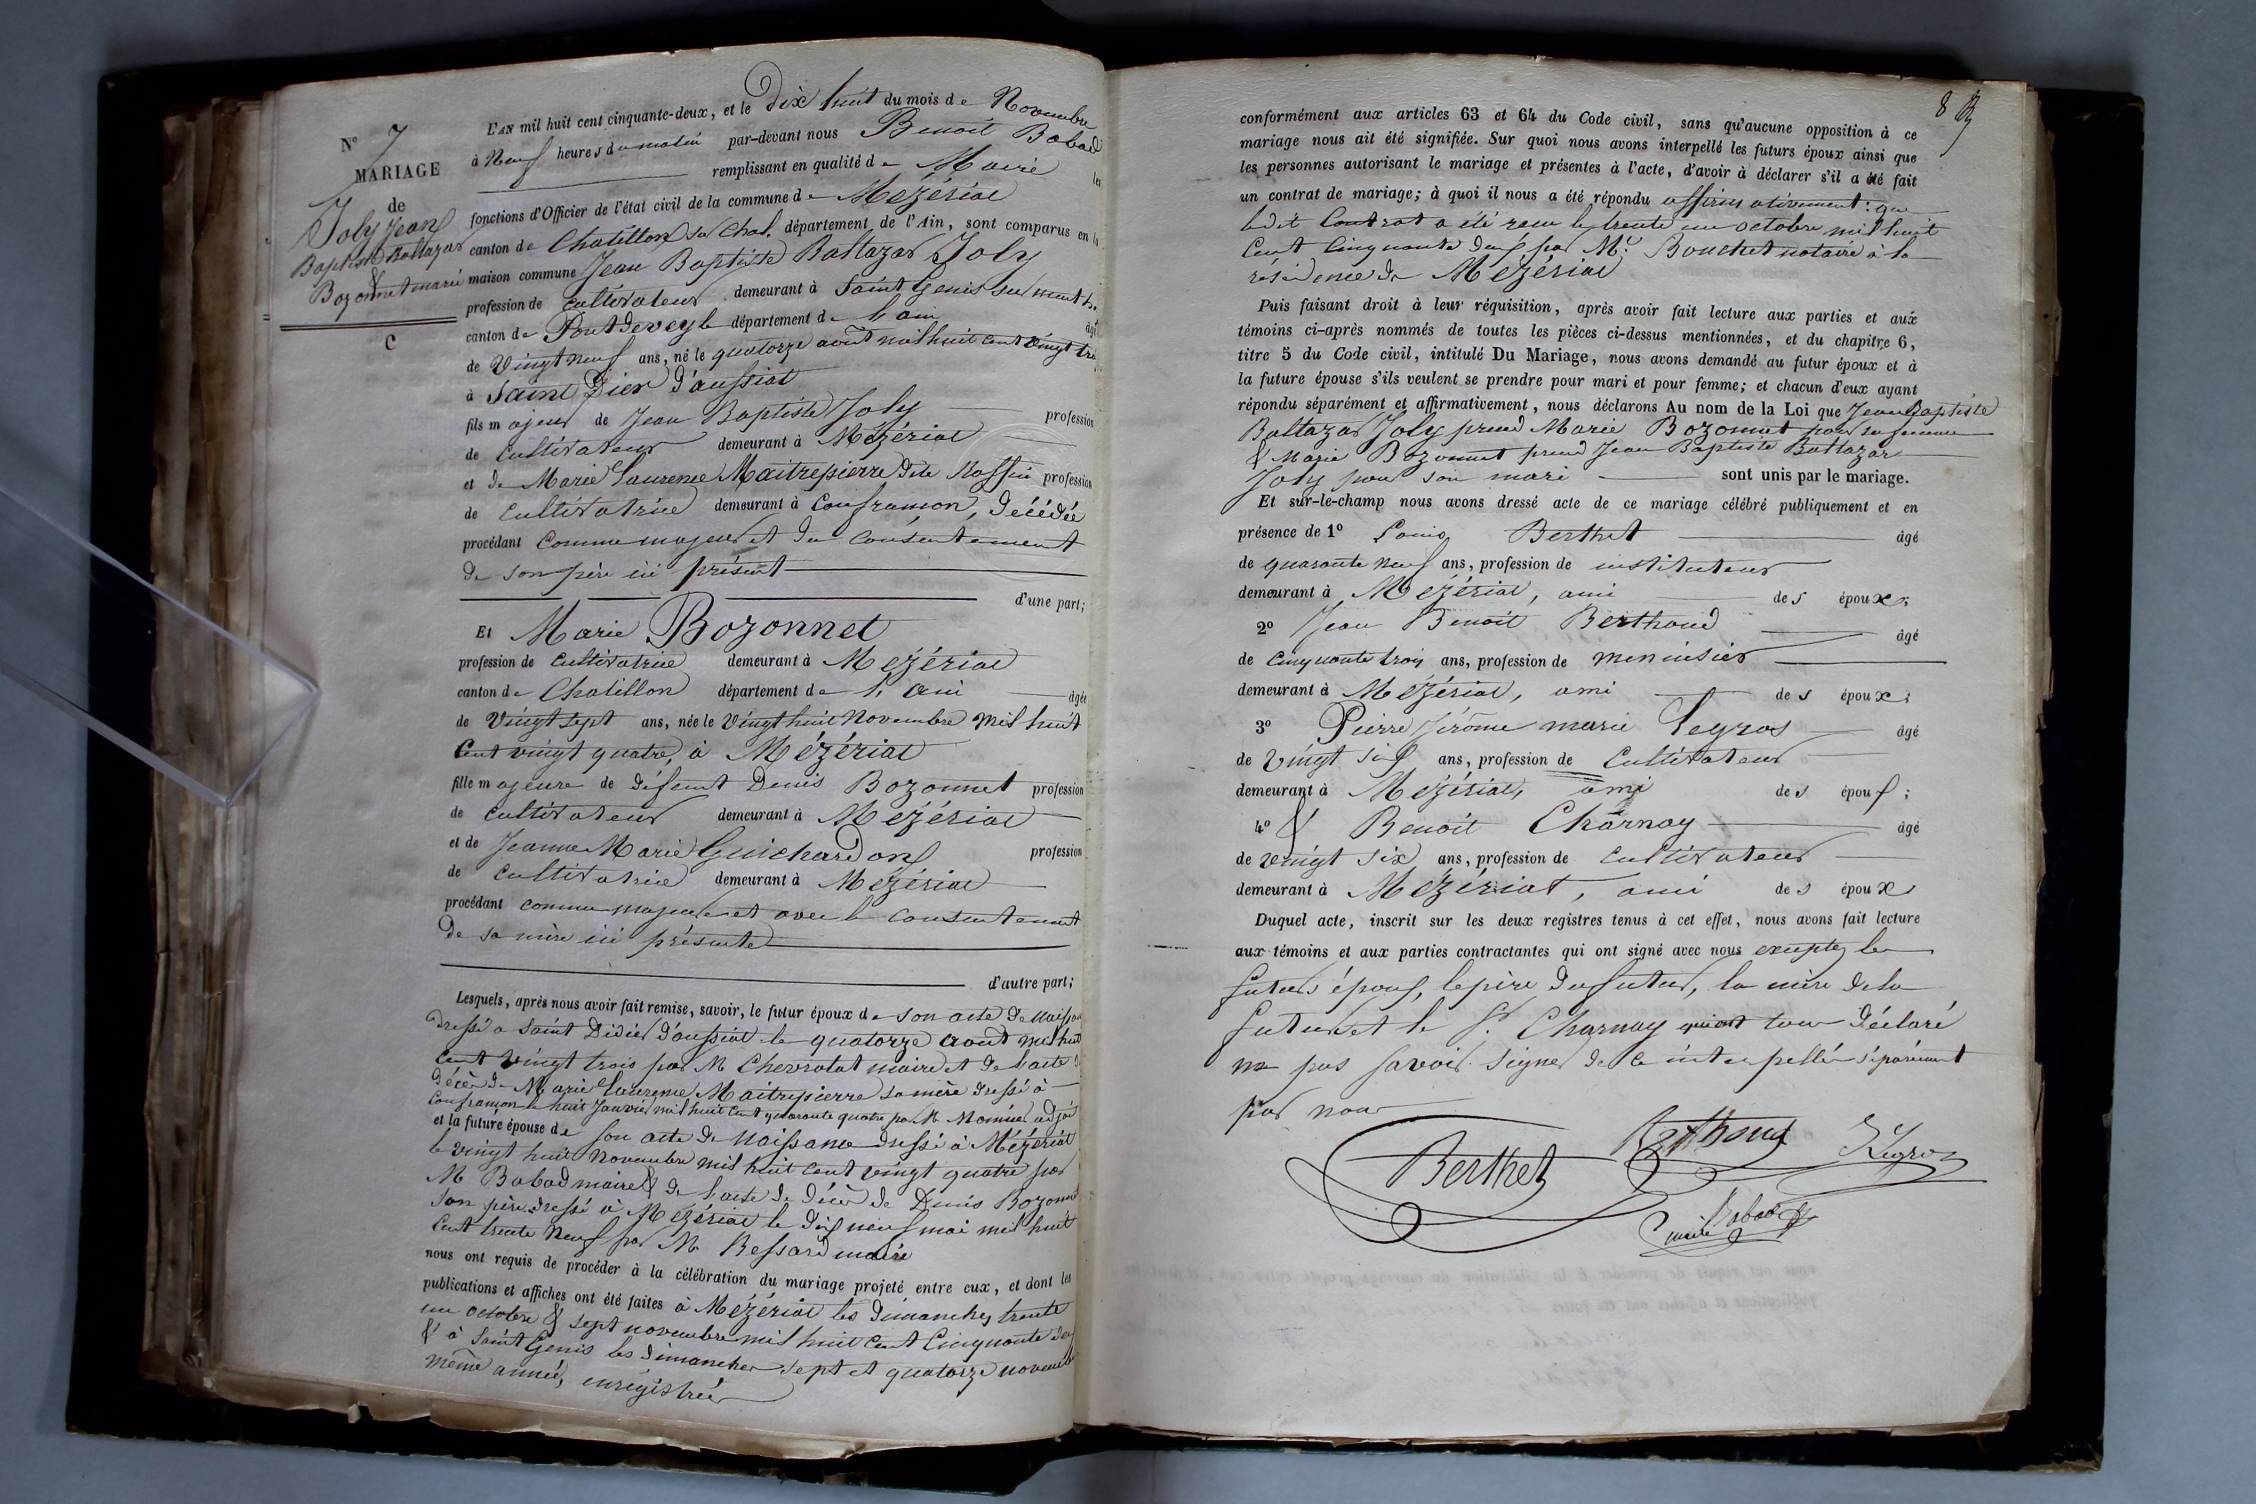 N° 7
MARIAGE
de
Joly Jean
Baptiste Baltazar
&
Bozonnet marie
C
L'AN mil huit cent cinquante-deux, et le Dix huit du mois de Novembre
à Neuf heures du matin par-devant nous Benoit Babad
remplissant en qualité de Maire les
fonctions d'Officier de l'état civil de la commune de Mézériat
canton de Chatillon sur Chal. département de l'Ain, sont comparus en la
maison commune Jean Baptiste Baltazar Joly
profession de cultivateur demeurant à Saint Genis sur menthon
canton de Pont de veyle département de l'ain âgé
de Vingt neuf ans, né le quatorze août mil huit cent vingt trois
à Saint Dier d'aussiat
fils majeur de Jean Baptiste Joly profession
de cultivateur demeurant à Mézériat
et de Marie Laurence Maitrepierre dite profession
de cultivatrice demeurant à Confrançon, décédée
procédant comme majeur et du consentement
de son père ici présent
d'une part;
Et Marie Bozonnet
profession de cultivatrice demeurant à Mézériat
canton de Chatillon département de l'ain âgée
de Vingt sept ans, née le Vingt huit Novembre mil huit
Cent vingt quatre, à Mézériat
fille majeure de défunt Denis Bozonnet profession
de cultivateur demeurant à Mézériat
et de Jeanne Marie Guichardon profession
de cultivatrice demeurant à Mézériat
procédant comme majeure et avec le consentement
de sa mère ici présente
d'autre part;
Lesquels, après nous avoir fait remise, savoir, le futur époux de son acte de naissan
dressé a Saint Didier d'aussiat le quatorze aout mil huit
Cent Vingt trois par M Chevrolat maire et de l'acte de
décès de Marie Laurence Maitrepierre sa mère dressé à
Confrançon le huit Janvier mil huit Cent quarante quatre par M. adjoi
et la future épouse de son acte de Naissance dressé à Mézériat
le vingt huit Novembre mil huit cent vingt quatre par
M Babad maire & de l'acte de décès de Denis Bozonnet
son père dressé à Mézériat le dix neuf mai mil huit
Cent trente Neuf par M. Bessard maire
nous ont requis de procéder à la célébration du mariage projeté entre eux, et dont les
publications et affiches ont été faites à Mézériat les dimanches trente
un octobre & sept novembre mil huit cent Cinquante deux
& à Saint Genis les dimanches sept et quatorze novembre
même année, enregistrée
8
conformément aux articles 63 et 64 du Code civil, sans qu'aucune opposition à ce
mariage nous ait été signifiée. Sur quoi nous avons interpellé les futurs époux ainsi que
les personnes autorisant le mariage et présentes à l'acte, d'avoir à déclarer s'il a été fait
un contrat de mariage; à quoi il nous a été répondu affirmativement: que
ledit Contrat a été recu le trente un octobre mil huit
Cent Cinquante deux par Mr. Bouchet notaire à la
résidence de Mézériat
Puis faisant droit à leur réquisition, après avoir fait lecture aux parties et aux
témoins ci-après nommés de toutes les pièces ci-dessus mentionnées, et du chapitre 6,
titre 5 du Code civil, intitulé Du Mariage, nous avons demandé au futur époux et à
la future épouse s'ils veulent se prendre pour mari et pour femme; et chacun d'eux ayant
répondu séparément et affirmativement, nous déclarons Au nom de la Loi que Jean Baptiste
Baltazar Joly prend Marie Bozonnet pour sa femme
& Marie Bozonnet prend Jean Baptiste Baltazar
Joly pour son mari sont unis par le mariage.
Et sur-le-champ nous avons dressé acte de ce mariage célébré publiquement et en
présence de 1° Louis Berthet âgé
de quarante neuf ans, profession de instituteur
demeurant à Mézériat, ami des époux;
2° Jean Benoit Berthoud âgé
de cinquante trois ans, profession de menuisier
demeurant à Mézériat, ami des époux;
3° Pierre Jérôme marie Legros âgé
de vingt six ans, profession de Cultivateur
demeurant à Mézériat, ami des époux;
4° & Benoit Charnay âgé
de vingt six ans, profession de cultivateur
demeurant à Mézériat, ami des époux
Duquel acte, inscrit sur les deux registres tenus à cet effet, nous avons fait lecture
aux témoins et aux parties contractantes qui ont signé avec nous exceptez les
futurs époux, le père du futur, la mère de la
future et le Sr. Charnay qui ont tous déclaré
ne pas savoir signer de ce interpellés séparément
par nous
Berthet
Berthoud
Legros
Babad
maire